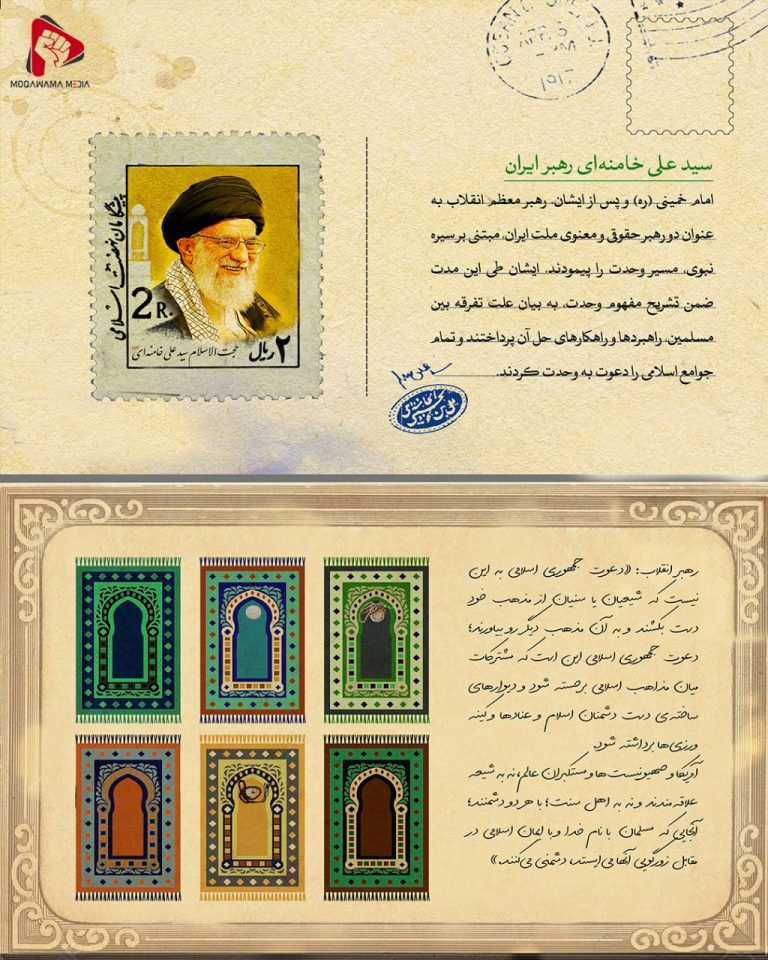 MOQAWAMA MEDIA
APR 6
1917
پیشگامان نهضت اسلامی
2 R.
۲ ریال
حجت الاسلام سید علی خامنه‌ای
سید علی خامنه‌ای رهبر ایران
امام خمینی (ره) و پس از ایشان، رهبر معظم انقلاب به
عنوان دو رهبر حقوقی و معنوی ملت ایران، مبتنی بر سیره
نبوی، مسیر وحدت را پیمودند. ایشان طی این مدت
ضمن تشریح مفهوم وحدت، به بیان علت تفرقه بین
مسلمین، راهبردها و راهکارهای حل آن پرداختند و تمام
جوامع اسلامی را دعوت به وحدت کردند.
رهبر انقلاب: «دعوت جمهوری اسلامی به این
نیست که شیعیان یا سنیان از مذهب خود
دست بکشند و به آن مذهب دیگر رو بیاورند؛
دعوت جمهوری اسلامی این است که مشترکات
میان مذاهب اسلامی برجسته شود و دیوارهای
ساخته‌ی دست دشمنان اسلام و عنادها و کینه
ورزی‌ها برداشته شود.
آمریکا و صهیونیست‌ها و مستکبران عالم، نه به شیعه
علاقه‌مندند و نه به اهل سنت؛ با هر دو دشمنند؛
آنجایی که مسلمان با نام خدا و با ایمان اسلامی در
مقابل زورگویی آنها می‌ایستد، دشمنی می‌کنند.»